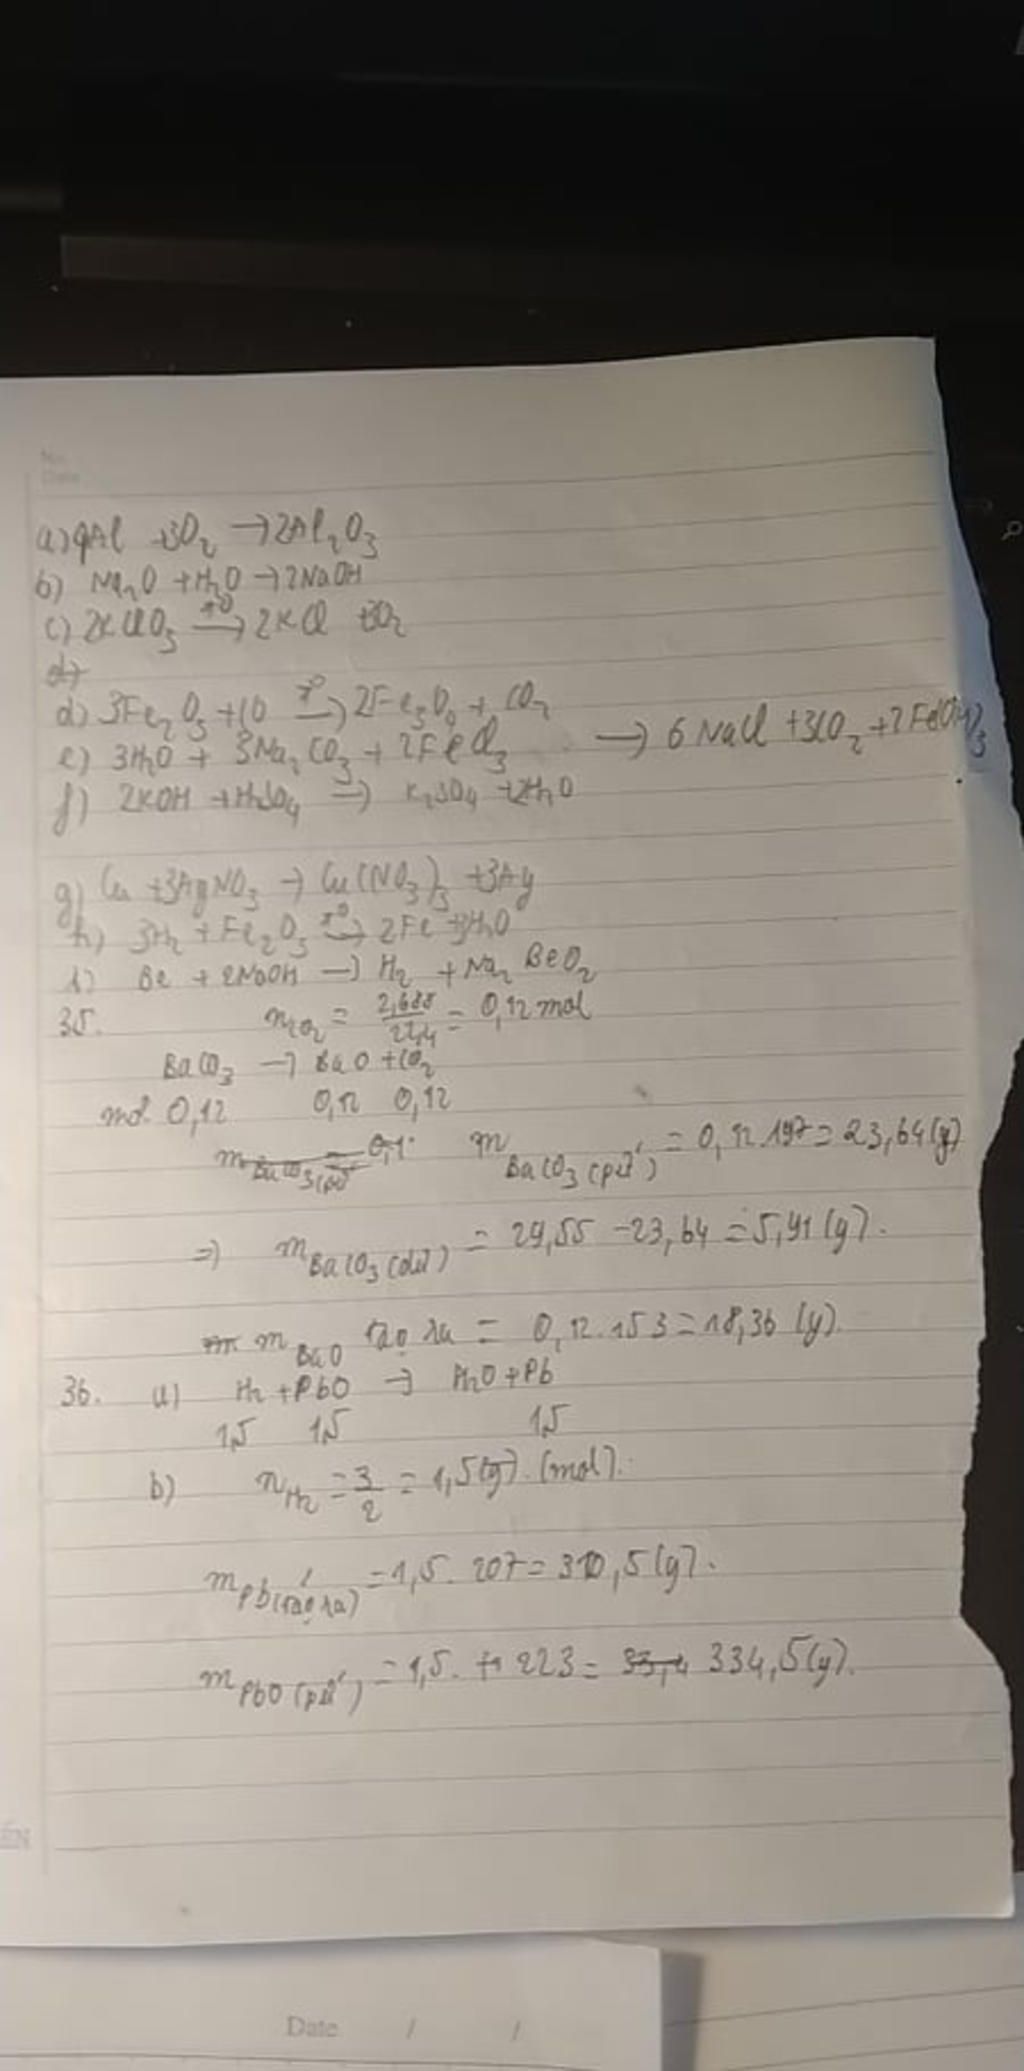 No.
Date
a) 4Al +3O₂ → 2Al₂O₃
b) Na₂O + H₂O → 2NaOH
c) 2KClO₃ →(t⁰) 2KCl + 3O₂
d)
d) 3Fe₂O₃ + CO →(t⁰) 2Fe₃O₄ + CO₂
e) 3H₂O + 3Na₂CO₃ + 2FeCl₃ → 6NaCl + 3CO₂ + 2Fe(OH)₃
f) 2KOH + H₂SO₄ → K₂SO₄ + 2H₂O
g) Cu + 3AgNO₃ → Cu(NO₃)₃ + 3Ag
h) 3H₂ + Fe₂O₃ →(t⁰) 2Fe + 3H₂O
i) Be + 2NaOH → H₂ + Na₂BeO₂
35. nCO₂ = 2,688/22,4 = 0,12 mol
BaCO₃ → BaO + CO₂
mol 0,12 0,12 0,12
mBaCO₃(pứ) = 0,1 mBaCO₃(pứ) = 0,12.197 = 23,64(g)
=> mBaCO₃(dư) = 29,55 - 23,64 = 5,91(g).
m mBaO tạo ra = 0,12.153 = 18,36 (g).
36. a) H₂ + PbO → H₂O + Pb
1,5 1,5 1,5
b) nH₂ = 3/2 = 1,5(g) (mol).
mPb(tạo ra) = 1,5. 207 = 310,5(g).
mPbO(pứ) = 1,5. 223 = 33,4 334,5(g).
Date / /